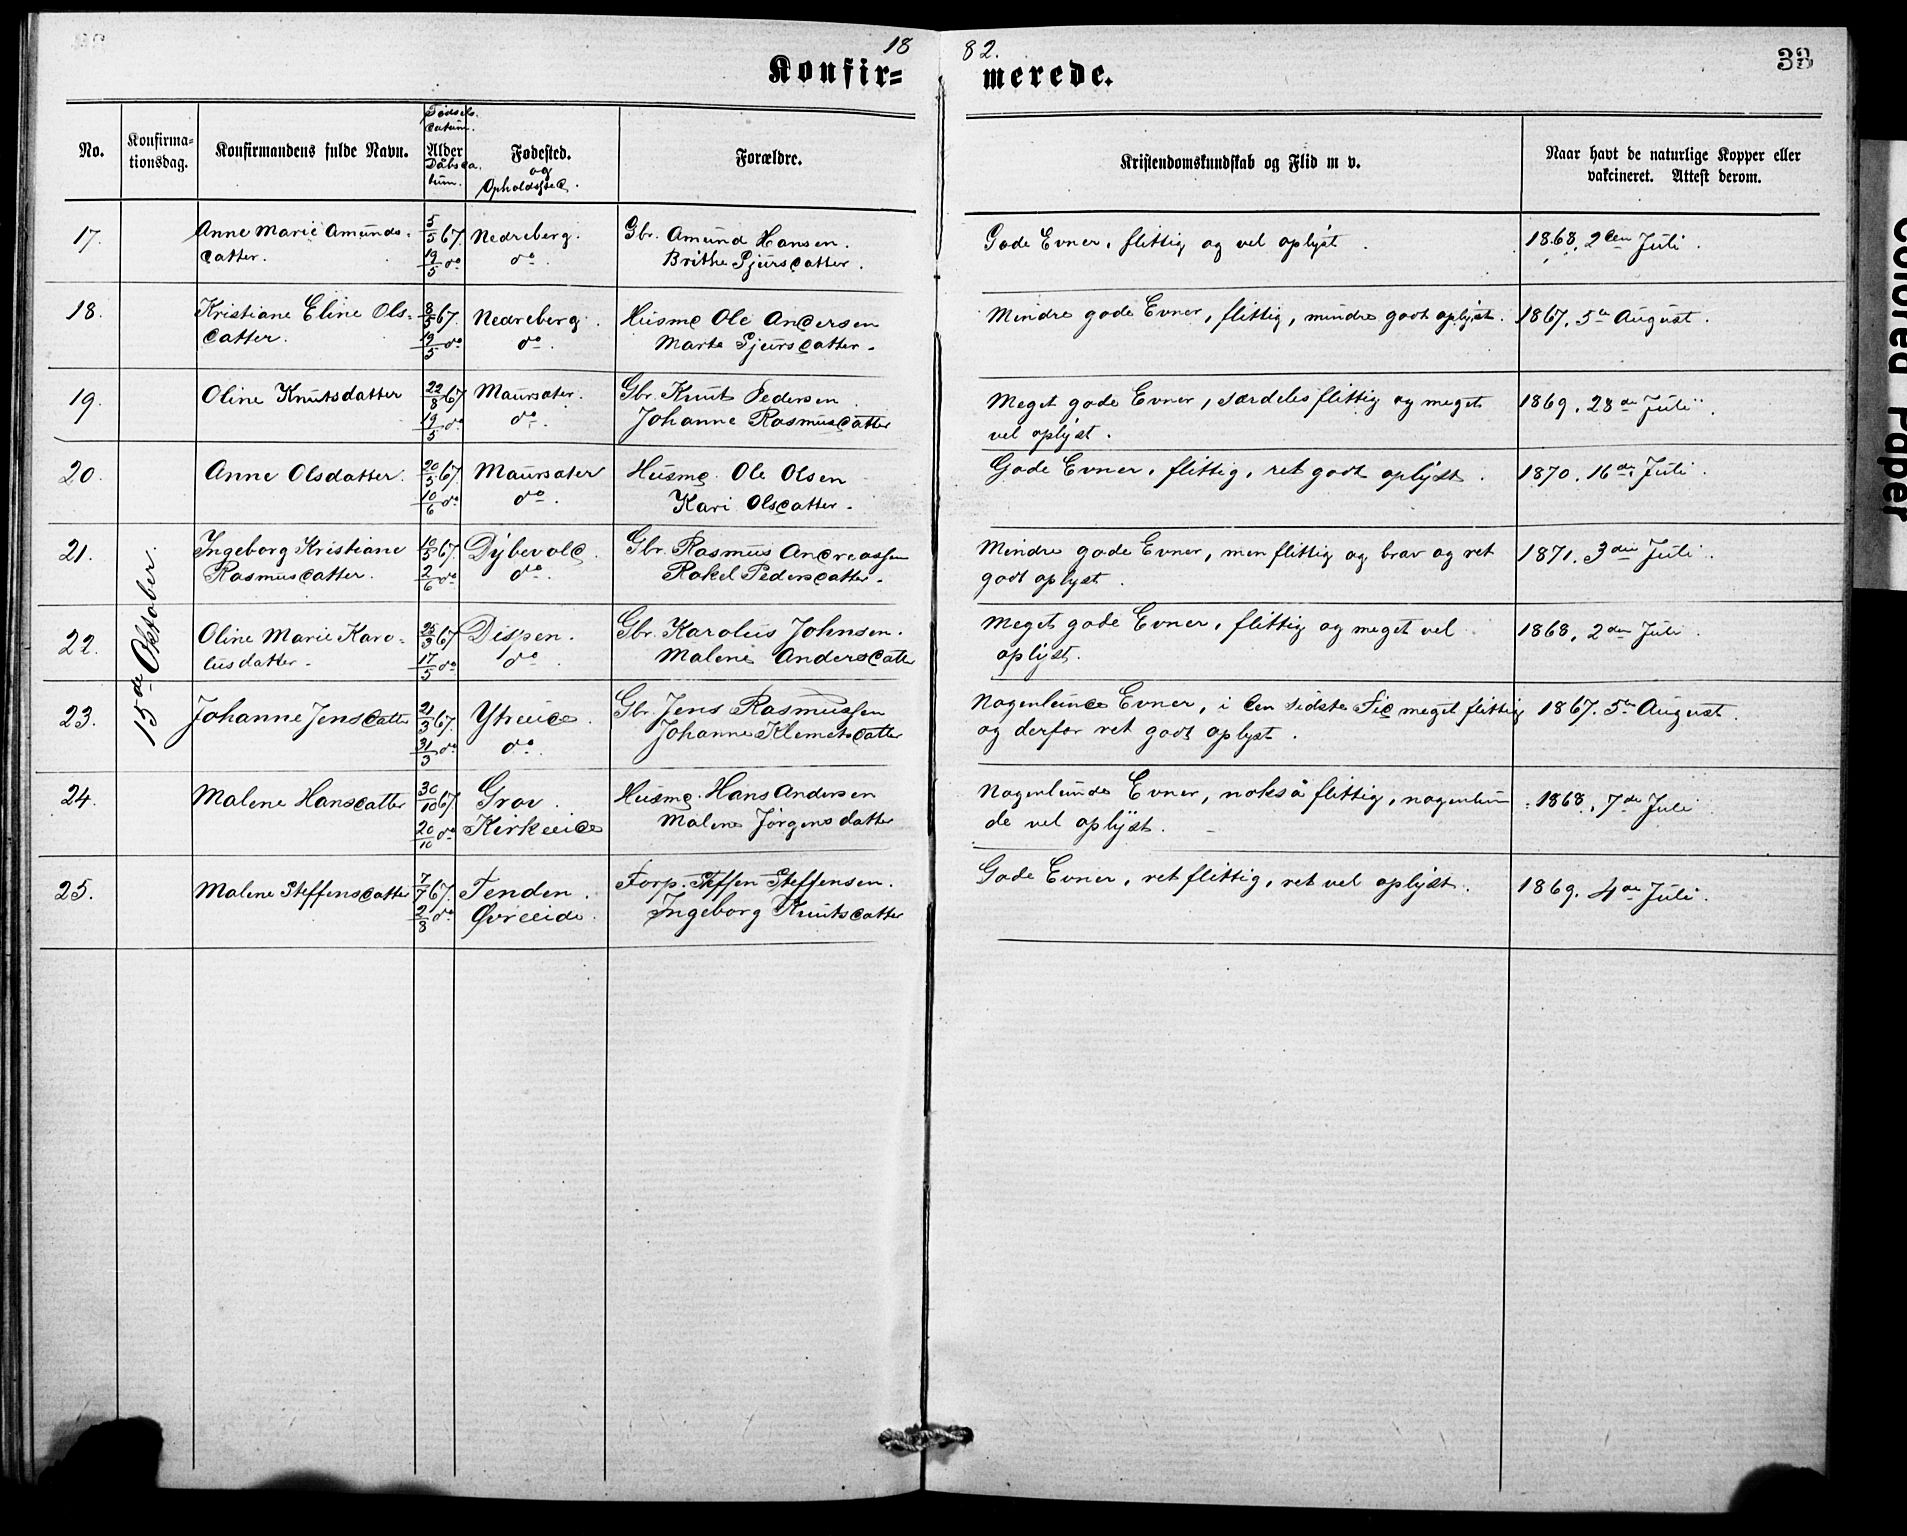 18 82.
Konfir= merede. 33
No. Konfirma-tionsdag. Konfirmandens fulde Navn. Fødsels-datum. Alder Dåbsdatum. Fødested. og Opholdssted. Forældre. Kristendomskundskab og Flid m v. Naar havt de naturlige Kopper eller vakcineret. Attest derom.
15de Oktober.
17. Anne Marie Amunds- 5/5 67. Nedreberg. Gbr. Amund Hansen. Gode Evner, flittig og vel oplyst. 1868, 2den Juli.
datter. 19/5 do do. Brithe Sjursdatter.
18. Kristiane Eline Ols- 8/5 67. Nedreberg. Husmd Ole Andersen Mindre gode Evner, flittig, mindre godt oplyst. 1867. 5te August.
datter. 19/5 do do. Marte Sjursdatter.
19. Oline Knutsdatter 22/8 67 Maursater. Gbr. Knut Pedersen Meget gode Evner, særdeles flittig og meget 1869. 28de Juli.
19/5 do do. Johanne Rasmusdatter vel oplyst.
20. Anne Olsdatter. 20/5 67. Maursater Husmd. Ole Olsen Gode Evner, flittig, ret godt oplyst. 1870. 16de Juli.
10/6 do do. Kari Olsdatter.
21. Ingeborg Kristiane 10/5 67. Dybevold. Gbr. Rasmus Andreassen Mindre gode Evner, men flittig og brav og ret 1871. 3die Juli.
Rasmusdatter. 2/6 do do. Rakel Pedersdatter. godt oplyst.
22. Oline Marie Karo- 25/3 67 Dispen. Gbr. Karolus Johnsen. Meget gode Evner, flittig og meget vel 1868. 2den Juli.
lusdatter. 17/5 do do Malene Andersdatter oplyst.
23. Johanne Jensdatter 21/3 67. Ytreeide. Gbr. Jens Rasmussen Nogenlunde Evner, i den sidste Tid meget flittig 1867. 5te August.
31/3 do do. Johanne Klemetsdatter og derfor ret godt oplyst.
24. Malene Hansdatter 30/10 67. Grov. Husmd. Hans Andersen Nogenlunde Evner, nokså flittig, nogenlun- 1868. 7de Juli
20/10 do Kirkeeide Malene Jørgensdatter de vel oplyst.
25. Malene Steffensdatter 7/7 67. Tenden. Forp. Steffen Steffensen. Gode Evner, ret flittig, ret vel oplyst. 1869. 4de Juli.
2/8 do. Øvreeide. Ingeborg Knutsdatter
Colored Paper